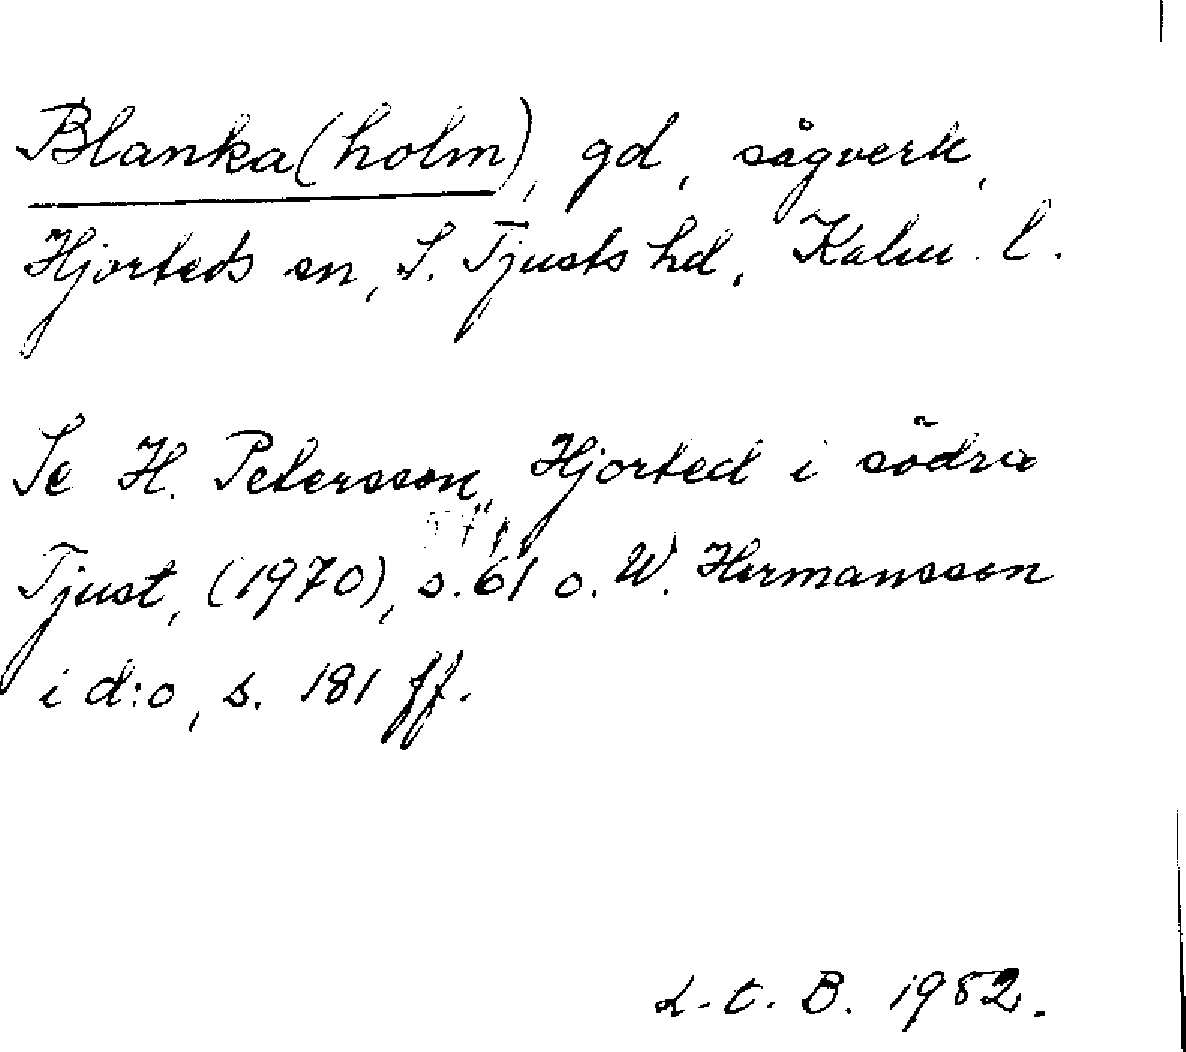 Blanka(holm), gd, sågverk,
Hjorteds sn, S. Tjusts hd, Kalm. l.
Se H. Petersson, Hjorted i södra
Tjust, (1970), s. 61 o. W. Hermansson
i d:o, s. 181 ff.
L. t. B. 1982.